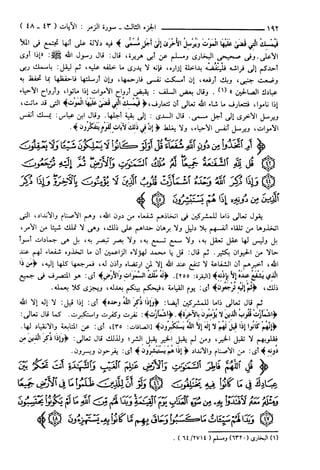 ١٩٢ الجزء الثالث - سورة الزمر: الآيات (٤٣ - ٤٨)
فَيُمْسِكُ الَّتِي قَضَىٰ عَلَيْهَا الْمَوْتَ وَيُرْسِلُ الْأُخْرَىٰ إِلَىٰ أَجَلٍ مُسَمًّى ﴾ فيه دلالة على أنها تجتمع في الملأ
الأعلى. وفي صحيحي البخاري ومسلم عن أبي هريرة، قال: قال رسول الله ﷺ: «إذا أوى
أحدكم إلى فراشه فلينفضه بداخلة إزاره، فإنه لا يدري ما خلفه عليه، ثم ليقل: باسمك ربي
وضعت جنبي، وبك أرفعه، إن أمسكت نفسي فارحمها، وإن أرسلتها فاحفظها بما تحفظ به
عبادك الصالحين»(١). وقال بعض السلف: يقبض أرواح الأموات إذا ماتوا، وأرواح الأحياء
إذا ناموا، فتتعارف ما شاء الله تعالى أن تتعارف، ﴿ فَيُمْسِكُ الَّتِي قَضَىٰ عَلَيْهَا الْمَوْتَ ﴾ التي قد ماتت،
ويرسل الأخرى إلى أجل مسمى. قال السدي: إلى بقية أجلها. وقال ابن عباس: يمسك أنفس
الأموات، ويرسل أنفس الأحياء، ولا يغلط ﴿ إِنَّ فِي ذَٰلِكَ لَآيَاتٍ لِقَوْمٍ يَتَفَكَّرُونَ ﴾.
أَمِ اتَّخَذُوا مِنْ دُونِ اللَّهِ شُفَعَاءَ قُلْ أَوَلَوْ كَانُوا لَا يَمْلِكُونَ شَيْئًا وَلَا يَعْقِلُونَ
قُلْ لِلَّهِ الشَّفَاعَةُ جَمِيعًا لَهُ مُلْكُ السَّمَاوَاتِ وَالْأَرْضِ ثُمَّ إِلَيْهِ تُرْجَعُونَ
وَإِذَا ذُكِرَ اللَّهُ وَحْدَهُ اشْمَأَزَّتْ قُلُوبُ الَّذِينَ لَا يُؤْمِنُونَ بِالْآخِرَةِ وَإِذَا ذُكِرَ
الَّذِينَ مِنْ دُونِهِ إِذَا هُمْ يَسْتَبْشِرُونَ
يقول تعالى ذاما للمشركين في اتخاذهم شفعاء من دون الله، وهم الأصنام والأنداد، التي
اتخذوها من تلقاء أنفسهم بلا دليل ولا برهان حداهم على ذلك، وهي لا تملك شيئا من الأمر،
بل وليس لها عقل تعقل به، ولا سمع تسمع به، ولا بصر تبصر به، بل هي جمادات أسوأ
حالا من الحيوان بكثير. ثم قال: قل يا محمد لهؤلاء الزاعمين أن ما اتخذوه شفعاء لهم عند
الله، أخبرهم أن الشفاعة لا تنفع عند الله إلا لمن ارتضاه وأذن له، فمرجعها كلها إليه، ﴿ مَنْ ذَا
الَّذِي يَشْفَعُ عِنْدَهُ إِلَّا بِإِذْنِهِ ﴾ [البقرة: ٢٥٥]. ﴿ لَهُ مُلْكُ السَّمَاوَاتِ وَالْأَرْضِ ﴾ أي: هو المتصرف في جميع
ذلك، ﴿ ثُمَّ إِلَيْهِ تُرْجَعُونَ ﴾ أي: يوم القيامة، فيحكم بينكم بعدله، ويجزي كلا بعمله.
ثم قال تعالى ذاما للمشركين أيضا: ﴿ وَإِذَا ذُكِرَ اللَّهُ وَحْدَهُ ﴾ أي: إذا قيل: لا إله إلا الله
﴿ اشْمَأَزَّتْ قُلُوبُ الَّذِينَ لَا يُؤْمِنُونَ بِالْآخِرَةِ ﴾. ﴿ اشْمَأَزَّتْ ﴾: نفرت وكفرت واستكبرت. كما قال تعالى:
﴿ إِنَّهُمْ كَانُوا إِذَا قِيلَ لَهُمْ لَا إِلَٰهَ إِلَّا اللَّهُ يَسْتَكْبِرُونَ ﴾ [الصافات: ٣٥]، أي: عن المتابعة والانقياد لها.
فقلوبهم لا تقبل الخير، ومن لم يقبل الخير يقبل الشر؛ ولذلك قال تعالى: ﴿ وَإِذَا ذُكِرَ الَّذِينَ مِنْ
دُونِهِ ﴾ أي: من الأصنام والأنداد ﴿ إِذَا هُمْ يَسْتَبْشِرُونَ ﴾ أي: يفرحون ويسرون.
قُلِ اللَّهُمَّ فَاطِرَ السَّمَاوَاتِ وَالْأَرْضِ عَالِمَ الْغَيْبِ وَالشَّهَادَةِ أَنْتَ تَحْكُمُ بَيْنَ
عِبَادِكَ فِي مَا كَانُوا فِيهِ يَخْتَلِفُونَ وَلَوْ أَنَّ لِلَّذِينَ ظَلَمُوا مَا فِي الْأَرْضِ جَمِيعًا
وَمِثْلَهُ مَعَهُ لَافْتَدَوْا بِهِ مِنْ سُوءِ الْعَذَابِ يَوْمَ الْقِيَامَةِ وَبَدَا لَهُمْ مِنَ اللَّهِ مَا لَمْ يَكُونُوا يَحْتَسِبُونَ
وَبَدَا لَهُمْ سَيِّئَاتُ مَا كَسَبُوا وَحَاقَ بِهِمْ مَا كَانُوا بِهِ يَسْتَهْزِئُونَ
(١) البخاري (٦٣٢٠) ومسلم (٢٧١٤/ ٦٤).